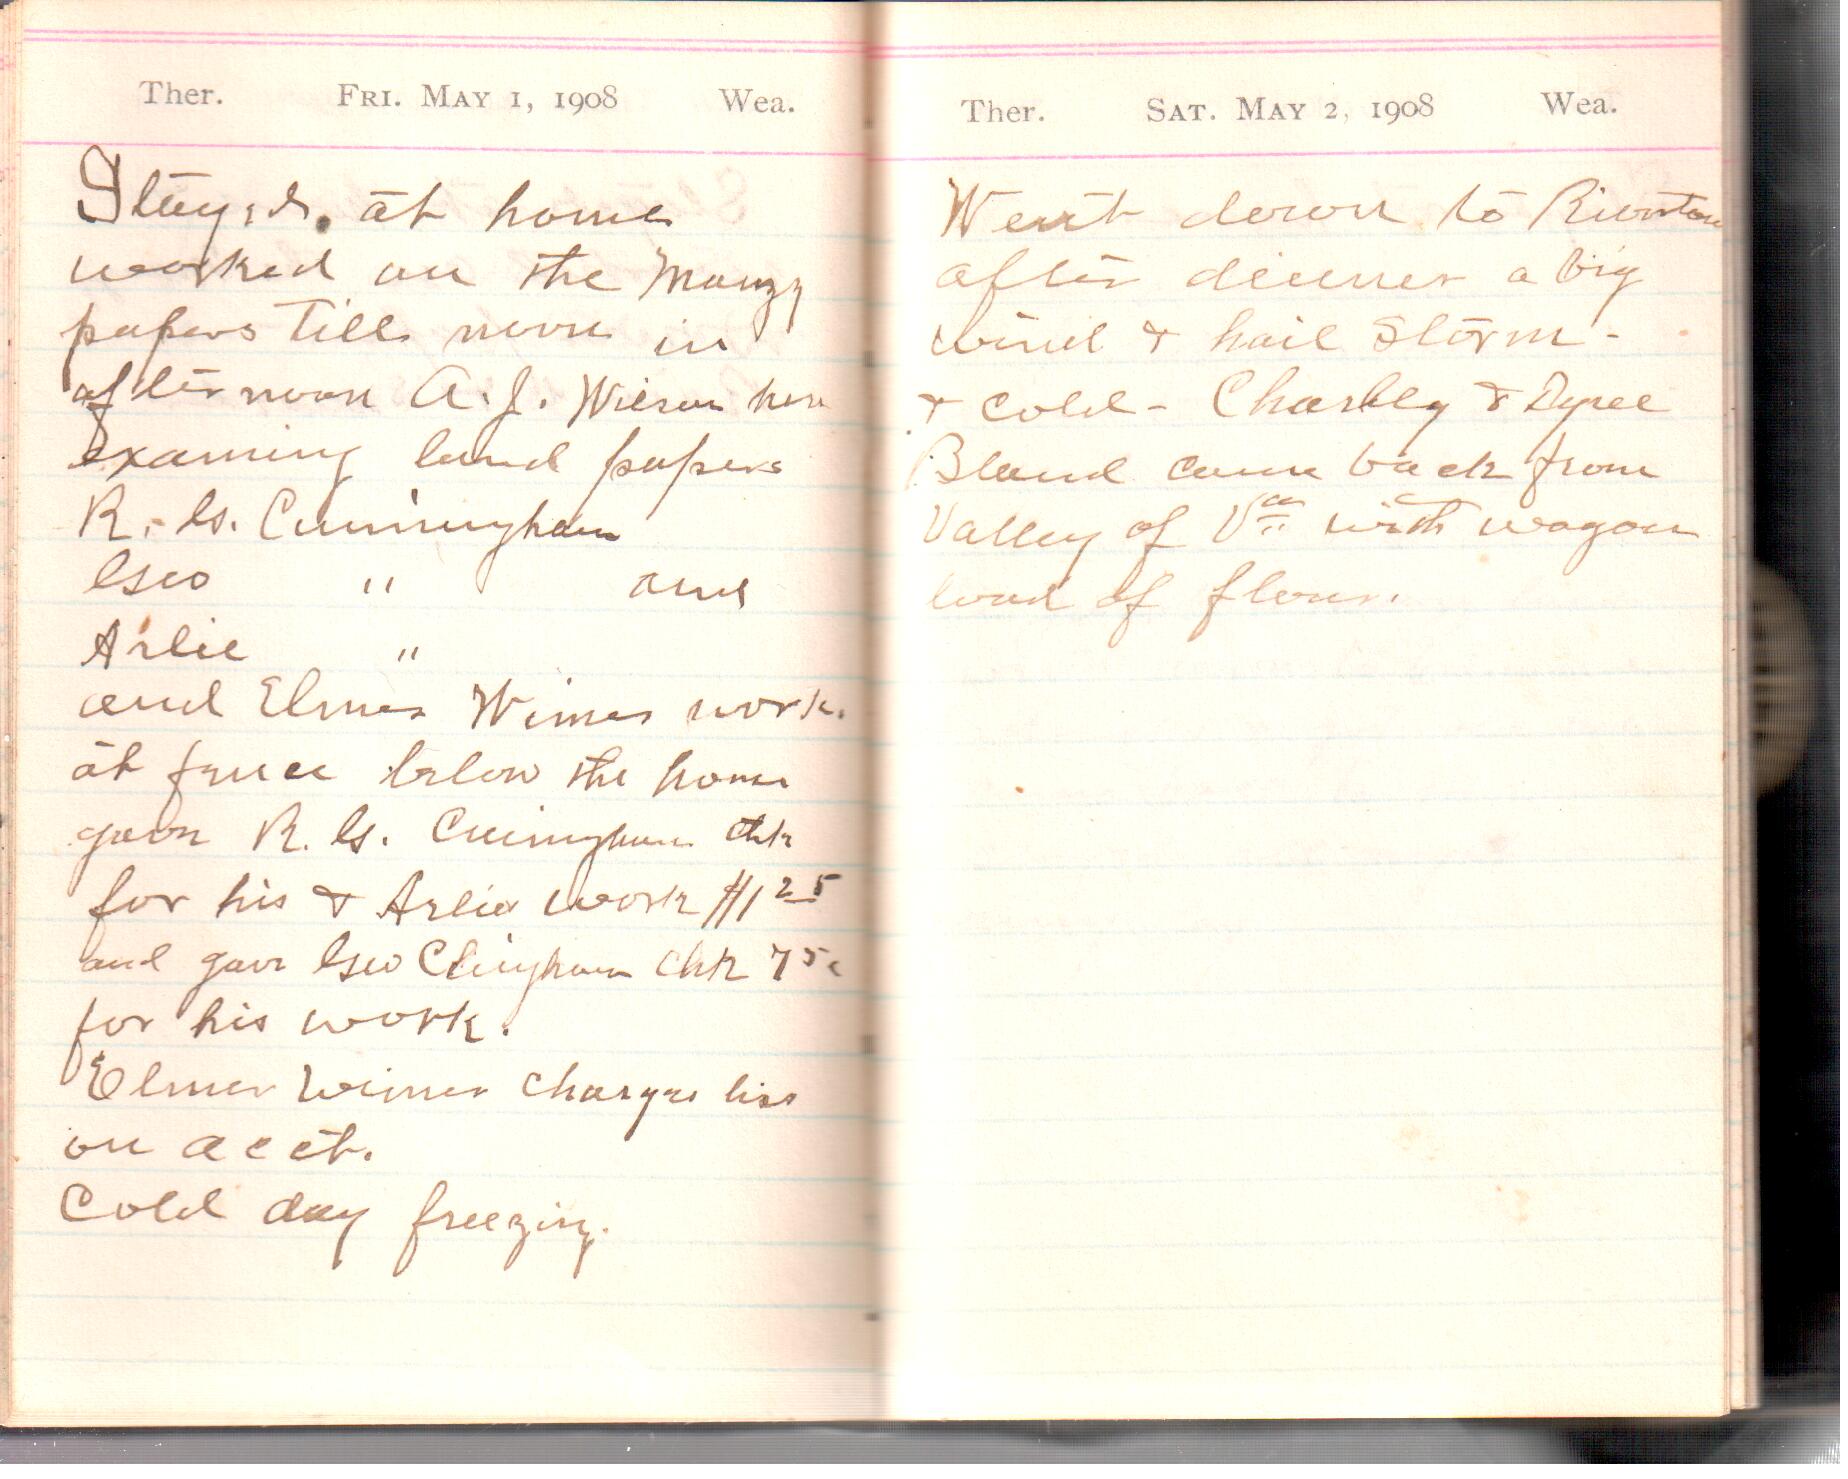 Ther. FRI. MAY 1, 1908 Wea.
Stayed. at home
worked on the Mauzy
papers till noon in
afternoon A. J. Wilson here
examing land papers
R. G. Cunningham
Geo " and
Arlie "
and Elmer Wimer work.
at fence below the home
gave R. G. Cuningham chk
for his & Arlie work $1 25
and gave Geo chk 75c
for his work.
Elmer Wimer charges his
on acct.
Cold day freezing.
Ther. SAT. MAY 2, 1908 Wea.
Went down to Riverton
after dinner a big
wind & hail storm -
& cold - Charley & Dyce
Bland came back from
Valley of Va with wagon
load of flour.